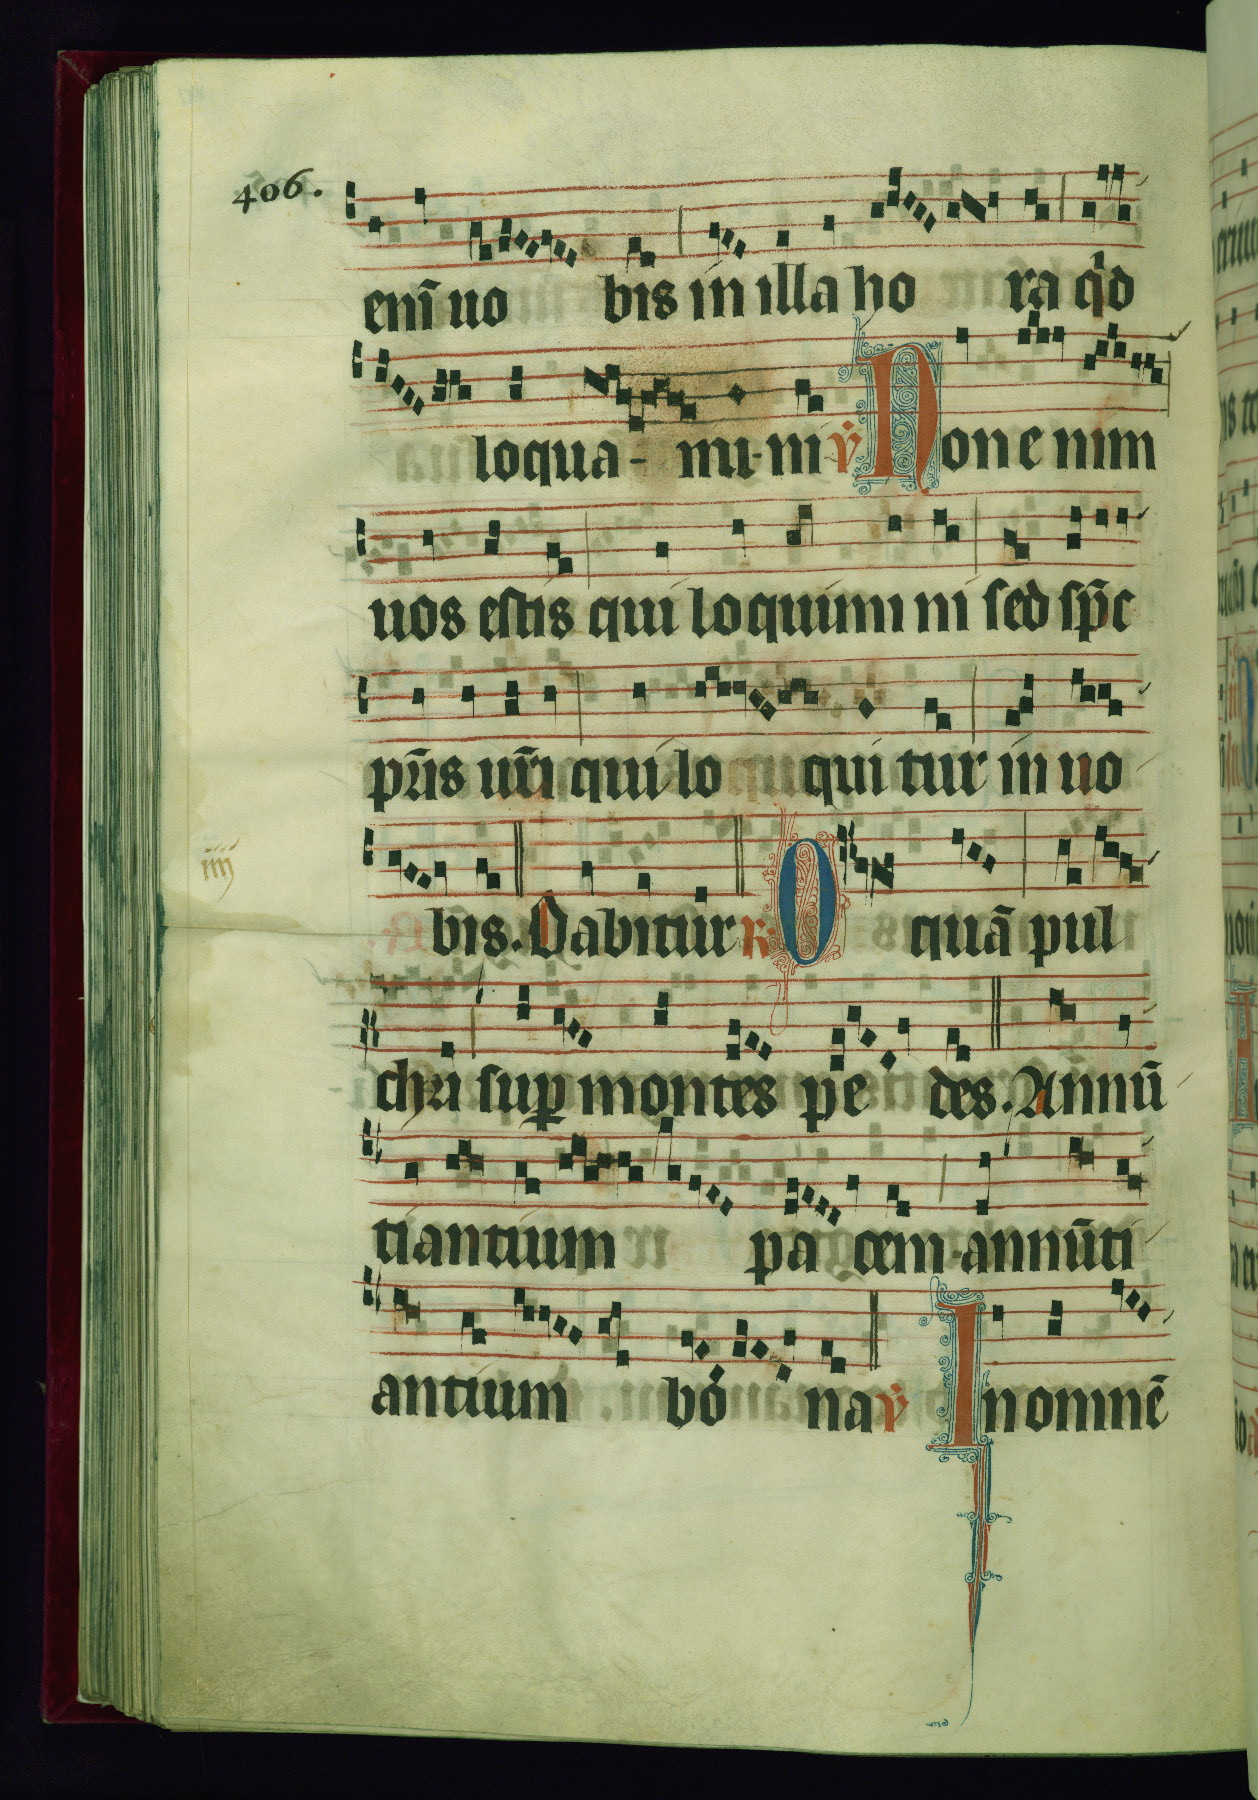 406.
enī uo bis in illa ho ra qd
loqua- mi·ni ℣ Non e nim
uos estis qui lo quimi ni sed sp̄c
pr̄is ur̄i qui lo qui tur in uo
iiij
bis. Dabitur ℟ O quā pul
chri sup montes pe des. Annū
tiantium pa cem·annūti
antium bo na ℣ In omnē